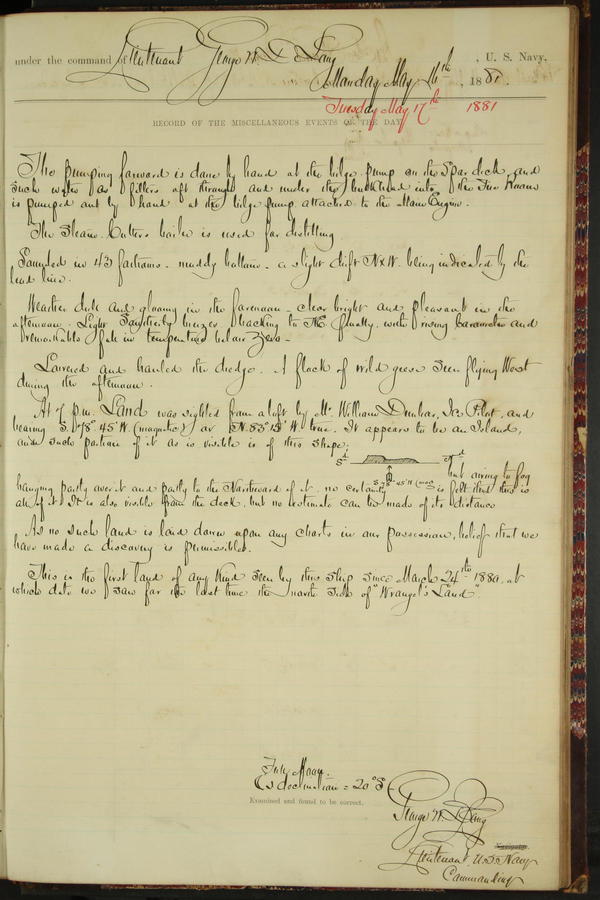 under the command of Lieutenant George W. De Long , U. S. Navy,
Monday May 16th , 1881.
Tuesday May 17th 1881
RECORD OF THE MISCELLANEOUS EVENTS OF THE DAY.
The pumping forward is done by hand at the bilge pump on the Spar deck, and
such water as filters aft through and under the bulkhead into the Fire Room
is pumped out by hand at the bilge pump attached to the Main Engine.
The Steam Cutters boiler is used for distilling
Sounded in 43 fathoms – muddy bottom – a slight drift N x W. being indicated by the
lead line.
Weather dull and gloomy in the forenoon – clear bright and pleasant in the
afternoon. Light Southerly breezes backing to NE finally, with rising barometer and
remarkable fall in temperature below Zero –
Lowered and hauled the dredge. A flock of wild geese seen flying West
during the afternoon.
At 7 p.m. Land was sighted from aloft by Mr. William Dunbar, Ice Pilot, and
bearing S. 78° 45' W (magnetic) or N. 83° 15' W true. It appears to be an Island,
and such portion of it as is visible is of this shape:
S'd N'd
but owing to fog
S 78° 45' W (mag)
hanging partly over it and partly to the Northward of it, no certainty is felt that this is
all of it. It is also visible from the deck, but no estimate can be made of its distance
As no such land is laid down upon any charts in our possession, belief that we
have made a discovery is permissible.
This is the first land of any kind seen by this ship since March 24th 1880, at
which date we saw for the last time the north side of "Wrangel's Land"
Full Moon.
☾'s declination = 20° S
Examined and found to be correct.
George W. De Long
Navigator.
Lieutenant U.S. Navy
Commanding